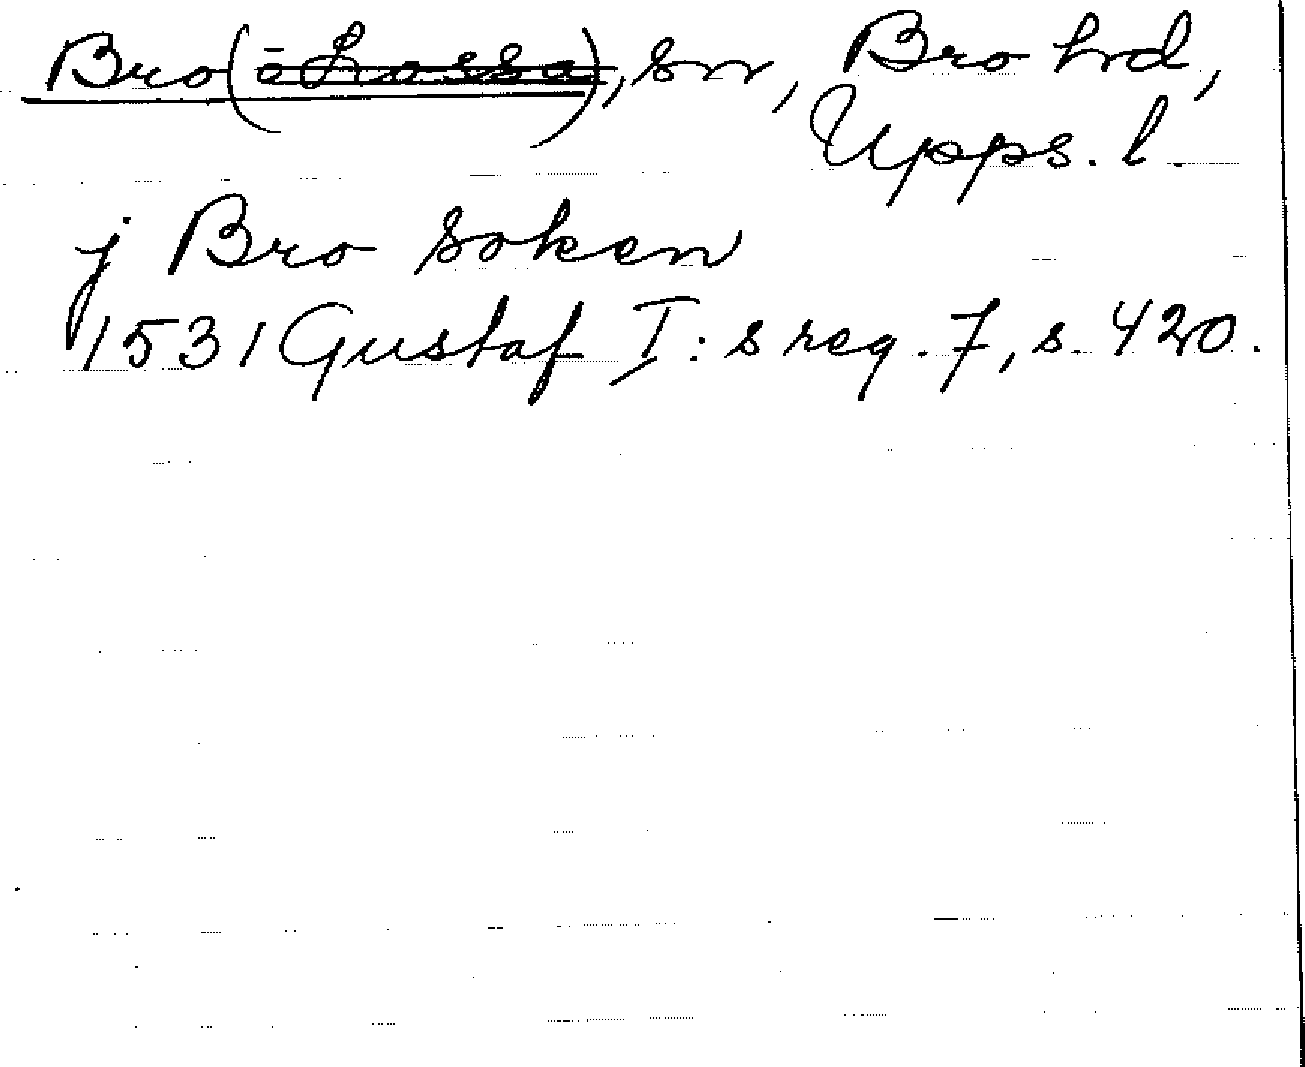 Bro (o Lossa), sn, Bro hd,
Upps. l.
j Bro soken
1531 Gustaf I:s reg. 7, s. 420.